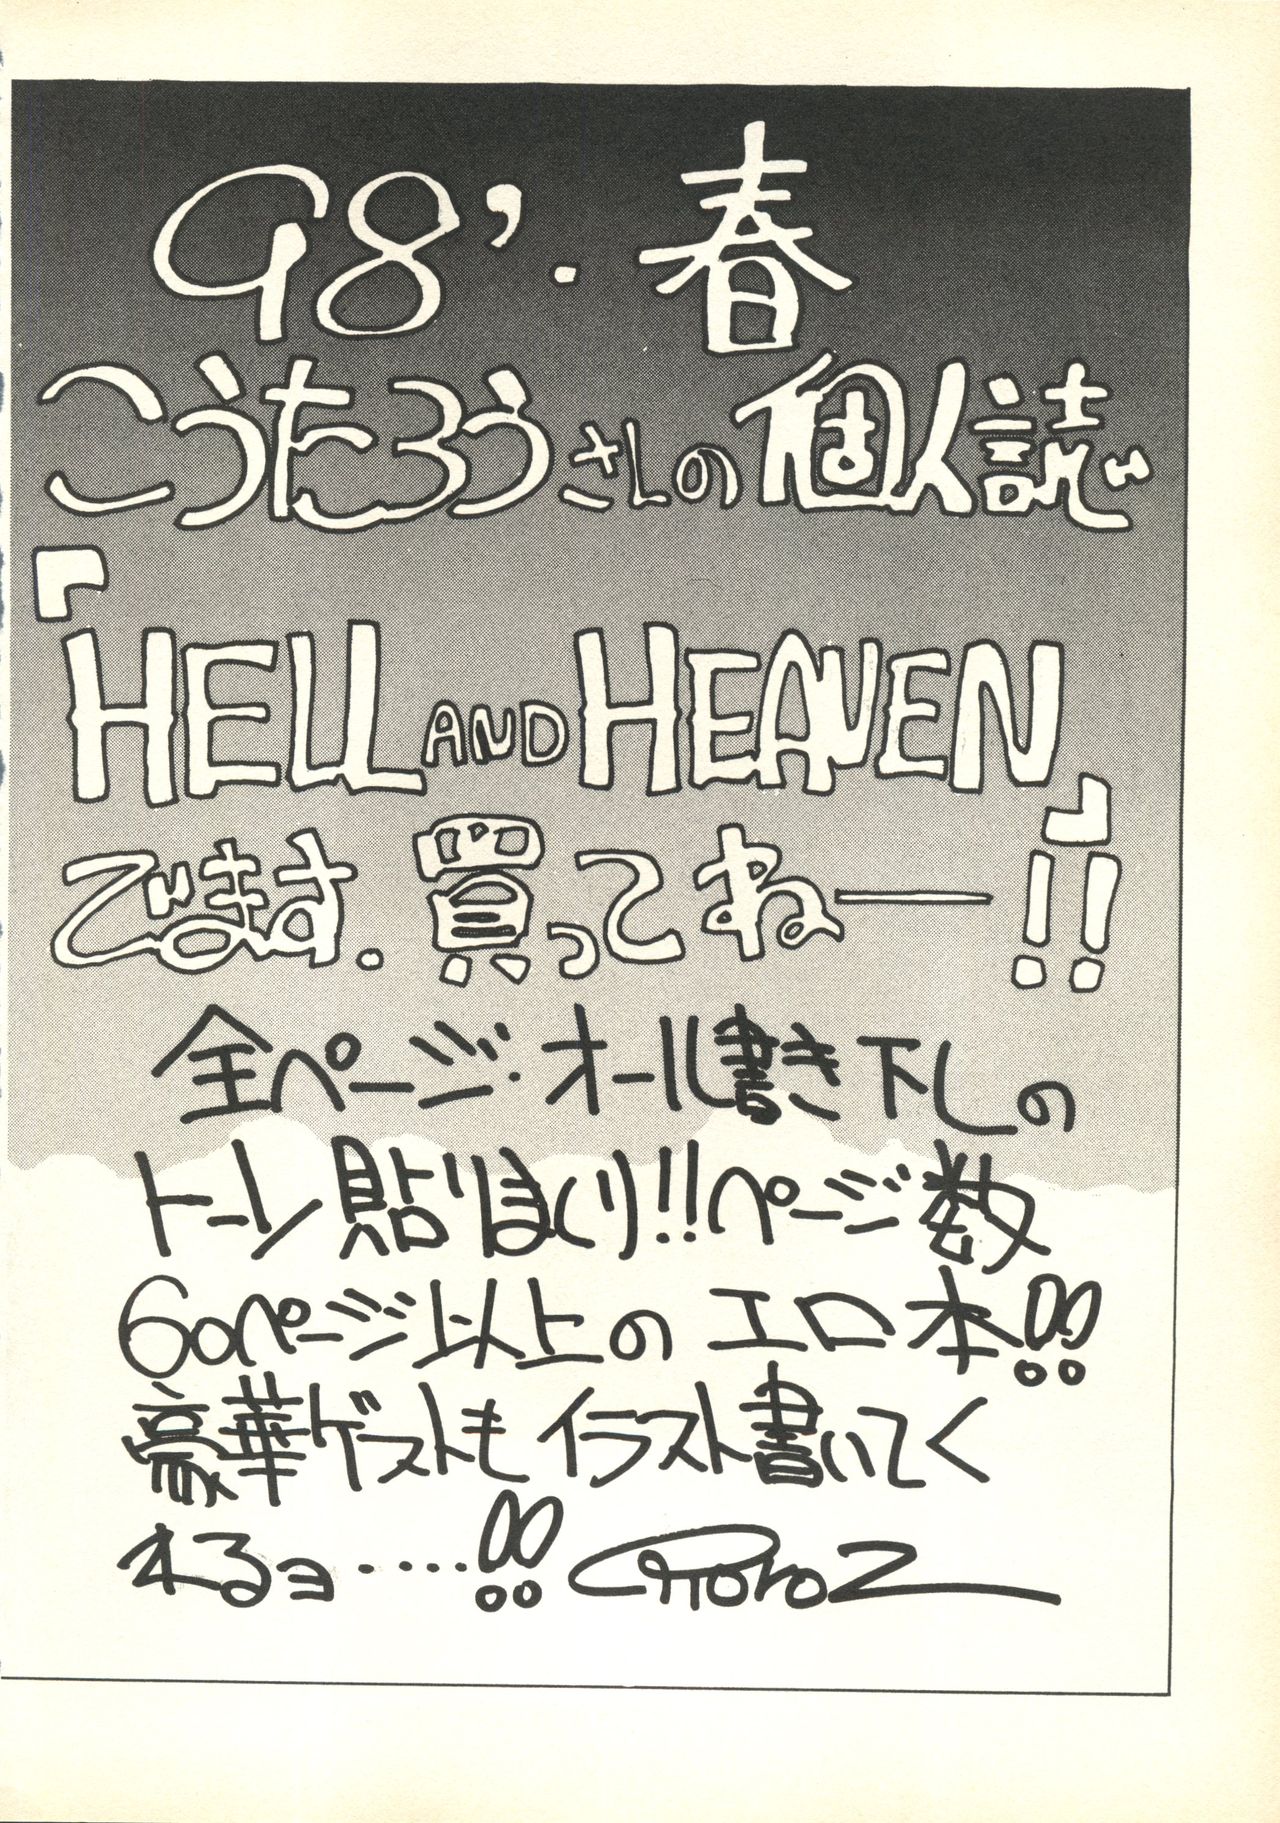 98'・春
こうたろうさんの個人誌
『HELL AND HEAVEN』
でます.買ってねー!!
全ページ・オール書き下しの
トーン貼りまくり!!ページ数
60ページ以上のエロ本!!
豪華ゲストもイラスト書いてく
れるョ・・・・・!!